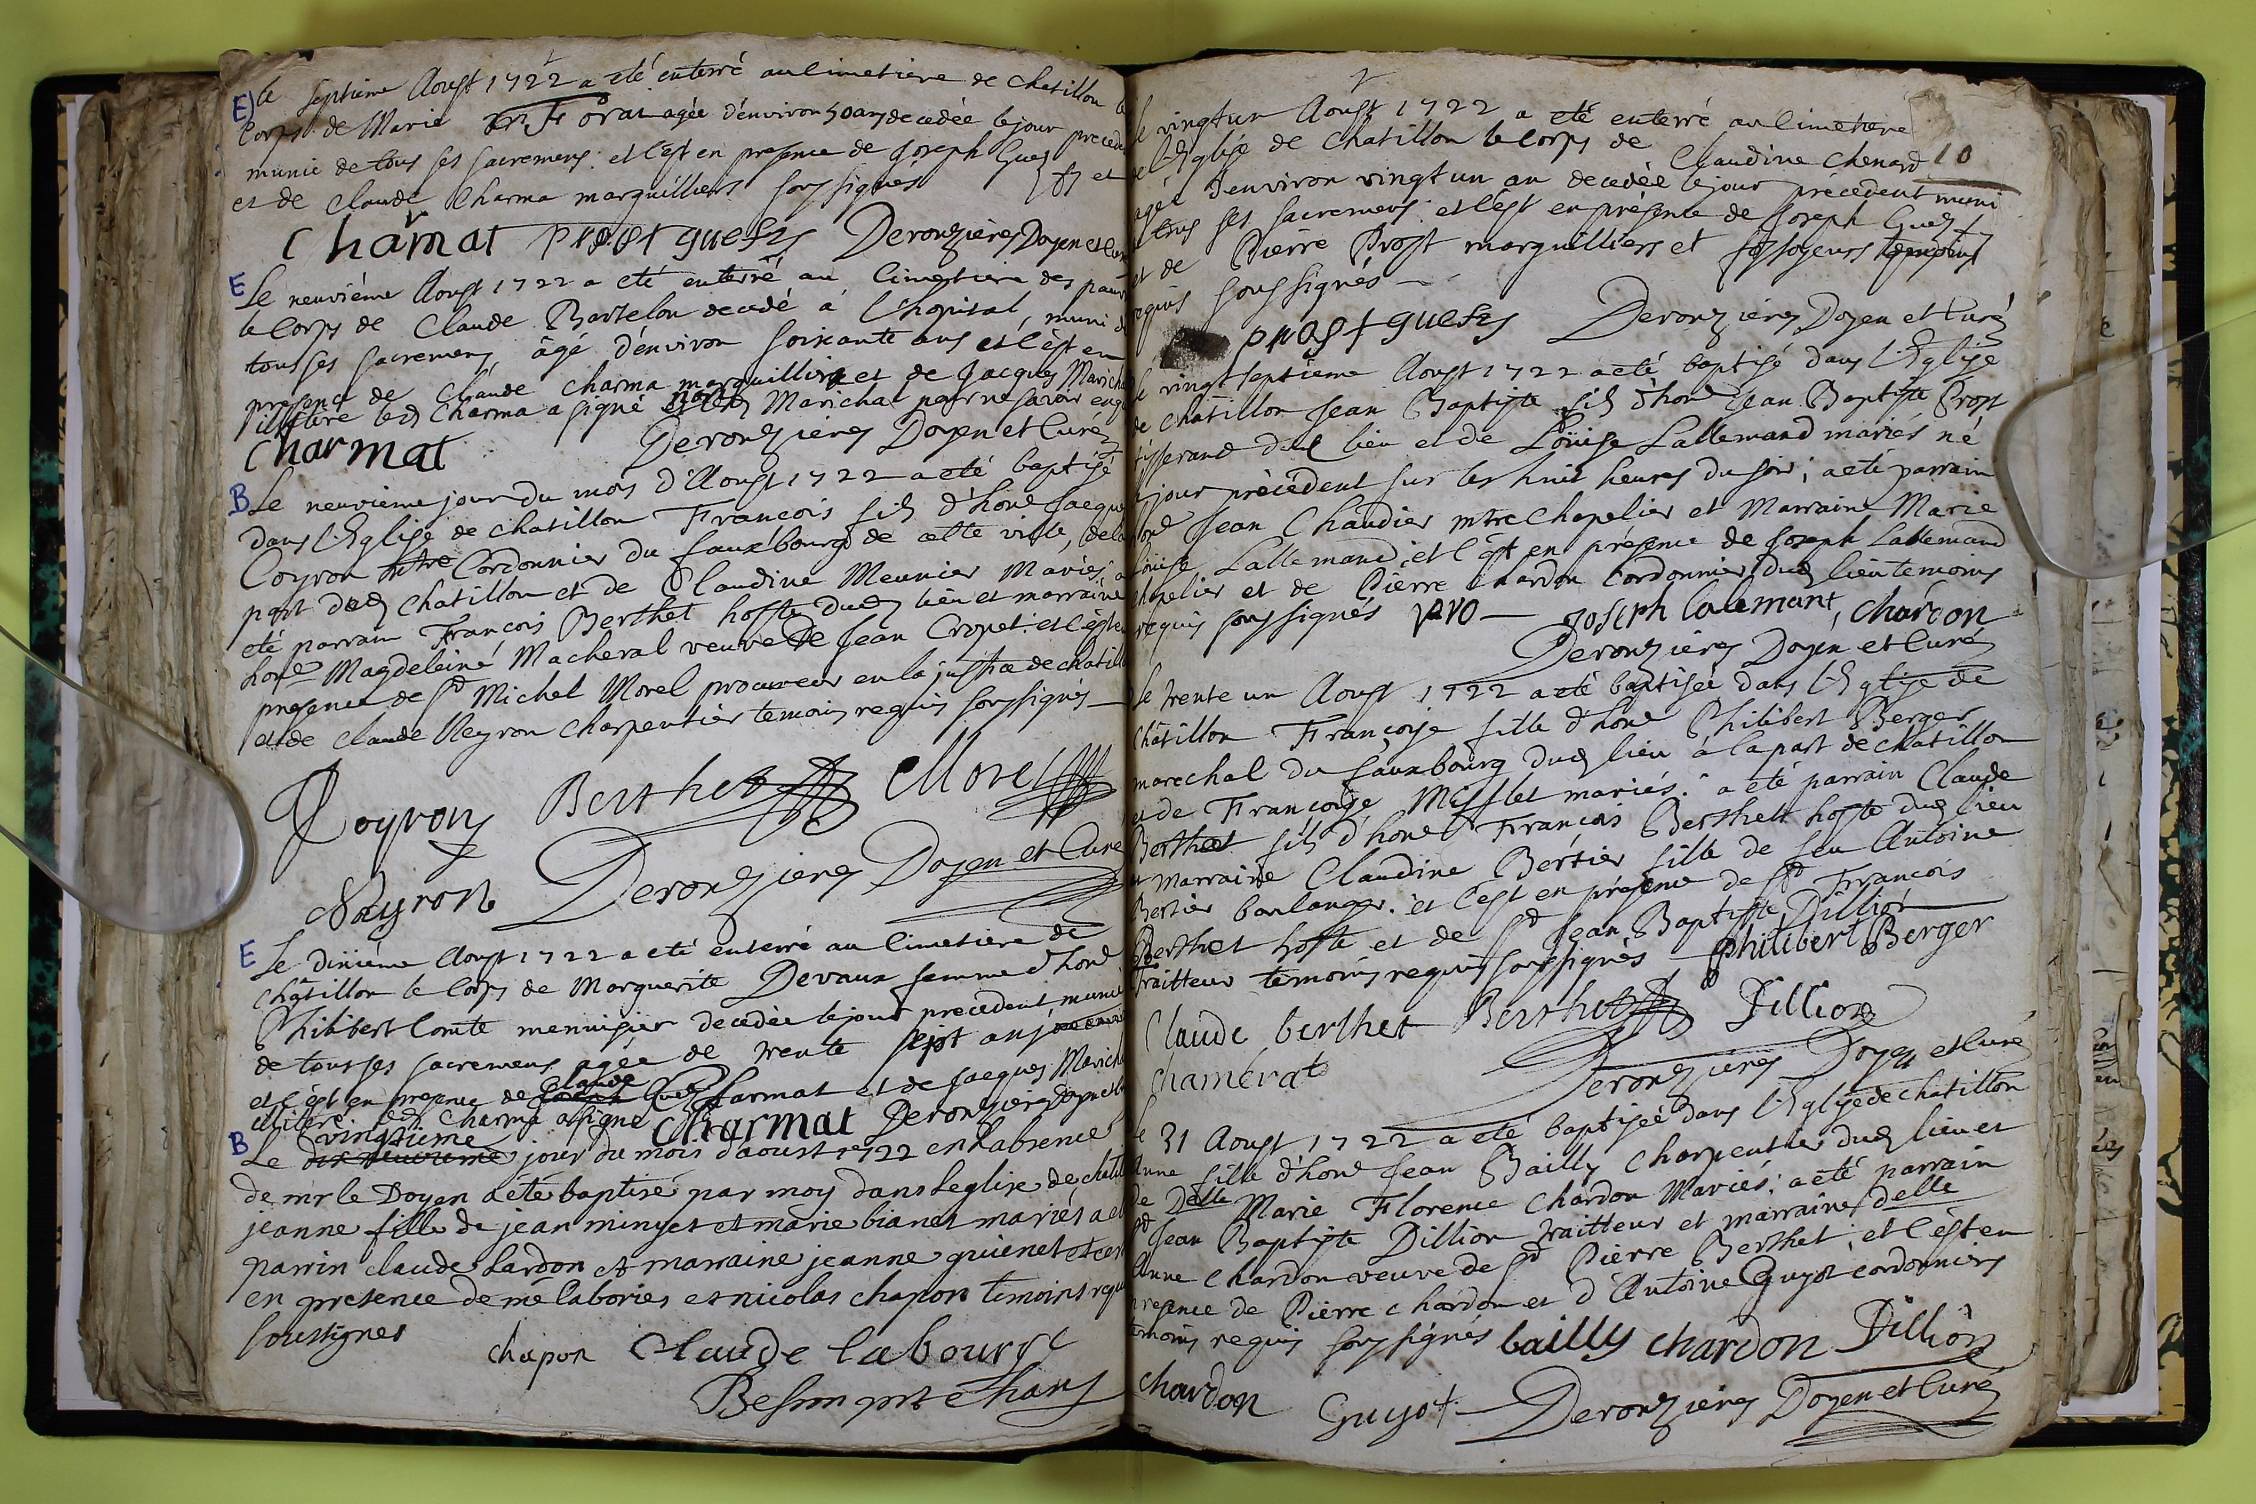 E) le septieme Aoust 1722 a eté enterré au cimetiere de chatillon le
corps de Marie orat agée d'environ 50 ans decedée le jour preced
munie de tous ses sacremens. et c'est en presence de Joseph Guez et
et de Claude Charma marguilliers soussignés
Charmat prost guefz Deronzieres Doyen et Curé
E Le neuviéme Aoust 1722 a eté enterré au Cimetiere des pauv
le Corps de Claude Bartelon decedé à l'hopital, muni de
tous ses sacremens, âgé d'environ soixante ans et c'est en
presence de Claude Charma marguillier et de Jacques Maricha
illitére led Charma a signé non led Marichal pour ne savoir enq
Charmat Deronzieres Doyen et Curé
B Le neuviéme jour du mois d'Aoust 1722 a eté baptisé
dans l'Eglise de chatillon Francois fils d'hone Jacque
Coyron mtre Cordonnier du fauxbourg de cette ville, de la
part dud chatillon et de Claudine Meunier Mariés. a
eté parrain Francois Berthet hoste dud lieu et marraine
hone Magdeleine Macheral veuve de Jean Cropet. et c'est en
presence de Sr Michel Morel procureur en la justice de chatill
et de Claude Reyron Charpentier temoins requis soussignés —
Coyron Berthet Morel
Reyron Deronzieres Doyen et Curé
E Le dixiéme Aoust 1722 a eté enterré au Cimetiere de
châtillon le Corps de Marguerite Devaux femme d'hone
Philibert Comte menuisier decedée le jour precedent munie
de tous ses sacremens agée de trente sept ans
et c'est en presence de Claude Charmat et de Jacques Maricha
illitére led Charma a signé Charmat Deronzieres Doyen et Curé
B Le vingtieme jour du mois daoust 1722 en labsence
de mr le Doyen a ete baptisé par moy dans leglise de chatil
jeanne fille de jean minyet et marie bianet mariés a et
parrin claude Lardon et marraine jeanne guienet et cest
en presence de mé labories et nicolas chapon temoins requ
soussignes
chapon Claude labourey
Besson prt
Le vingt un Aoust 1722 a eté enterré au Cimetiere
de l'Eglise de Chatillon le Corps de Claudine Chenard 10
agée d'environ vingt un an decedée le jour précedent muni
de tous ses sacremens et c'est en présence de Joseph Guez
et de Pierre Prost marguilliers et fossoyeurs
requis soussignés —
prost guefz Deronzieres Doyen et Curé
Le vingt septieme Aoust 1722 a eté baptisé dans l'Eglise
de chatillon Jean Baptiste fils d'hone Jean Baptiste Prost
tisserand dud lieu et de Loüise Lallemand mariés né
le jour précédent sur les huit heures du soir; a eté parrain
hone Jean Chaudier mtre Chapelier et Marraine Marie
Loüise Lallemand; et c'est en présence de Joseph Lallemand
chapelier et de Pierre Chardon Cordonnier dud lieu temoins
requis soussignés pro — Joseph lalemant, chardon
Deronzieres Doyen et Curé
Le trente un Aoust 1722 a eté baptisée dans l'Eglise de
Châtillon Françoise fille d'hone Philibert Berger
marechal du fauxbourg dud lieu à la part de chatillon
et de Françoise mariés. a été parrain Claude
Berthet fils d'hone François Berthet hoste dud lieu
et marraine Claudine Bertier fille de feu Antoine
Bertier boulanger. et c'est en présence de Sr François
Berthet hoste et de Sr Jean Baptiste Dillion
traitteur temoins requis soussignés Philibert Berger
Claude berthet Berthet Dillion
Chamerat Deronzieres Doyen et Curé
Le 31 Aoust 1722 a eté baptisée dans l'Eglise de chatillon
Anne fille d'hone Jean Bailly Charpentier dud lieu et
de Delle Marie Florence Chardon Mariés: a eté parrain
Sr Jean Baptiste Dillion traitteur et marraine delle
Anne Chardon veuve de Sr Pierre Berthet, et c'est en
presence de Pierre chardon et d'Antoine Guyot cordonniers
temoins requis soussignés bailly chardon Dillion
chardon Guyot Deronzieres Doyen et Curé